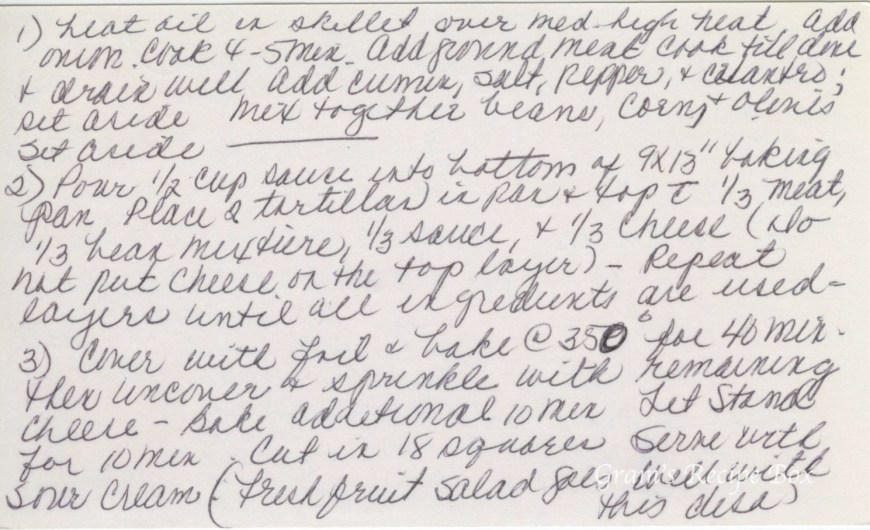 1) heat oil in skillet over med-high heat Add
onion. Cook 4-5 min. Add ground meat cook till done
& drain well Add cumin, salt, pepper, & cilantro;
set aside Mix together beans, corn, & olives
set aside
2) Pour 1/2 cup sauce into bottom of 9x13" baking
pan Place 2 tortillas in pan & top c̄ 1/3 meat,
1/3 bean mixture, 1/3 sauce, & 1/3 cheese (Do
not put cheese on the top layer) - Repeat
layers until all ingredients are used-
3) Cover with foil & bake @ 350° for 40 min.
then uncover & sprinkle with remaining
cheese - Bake additional 10 min Let Stand
for 10 min. Cut in 18 squares Serve with
Sour Cream (fresh fruit salad goes well with
this dish)
Gram's Recipe Box